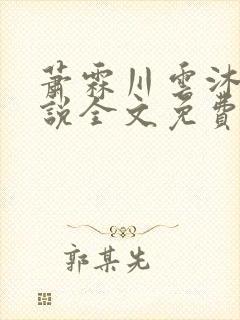 蕭霖川雲沐
說全文免費
郭某先